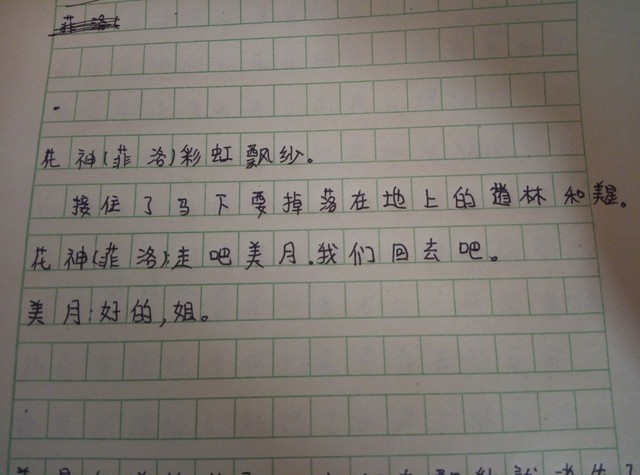 花神(菲洛)彩虹飘纱。
接住了马下要掉落在地上的道林和美星。
花神(菲洛):走吧美月.我们回去吧。
美月:好的,姐。